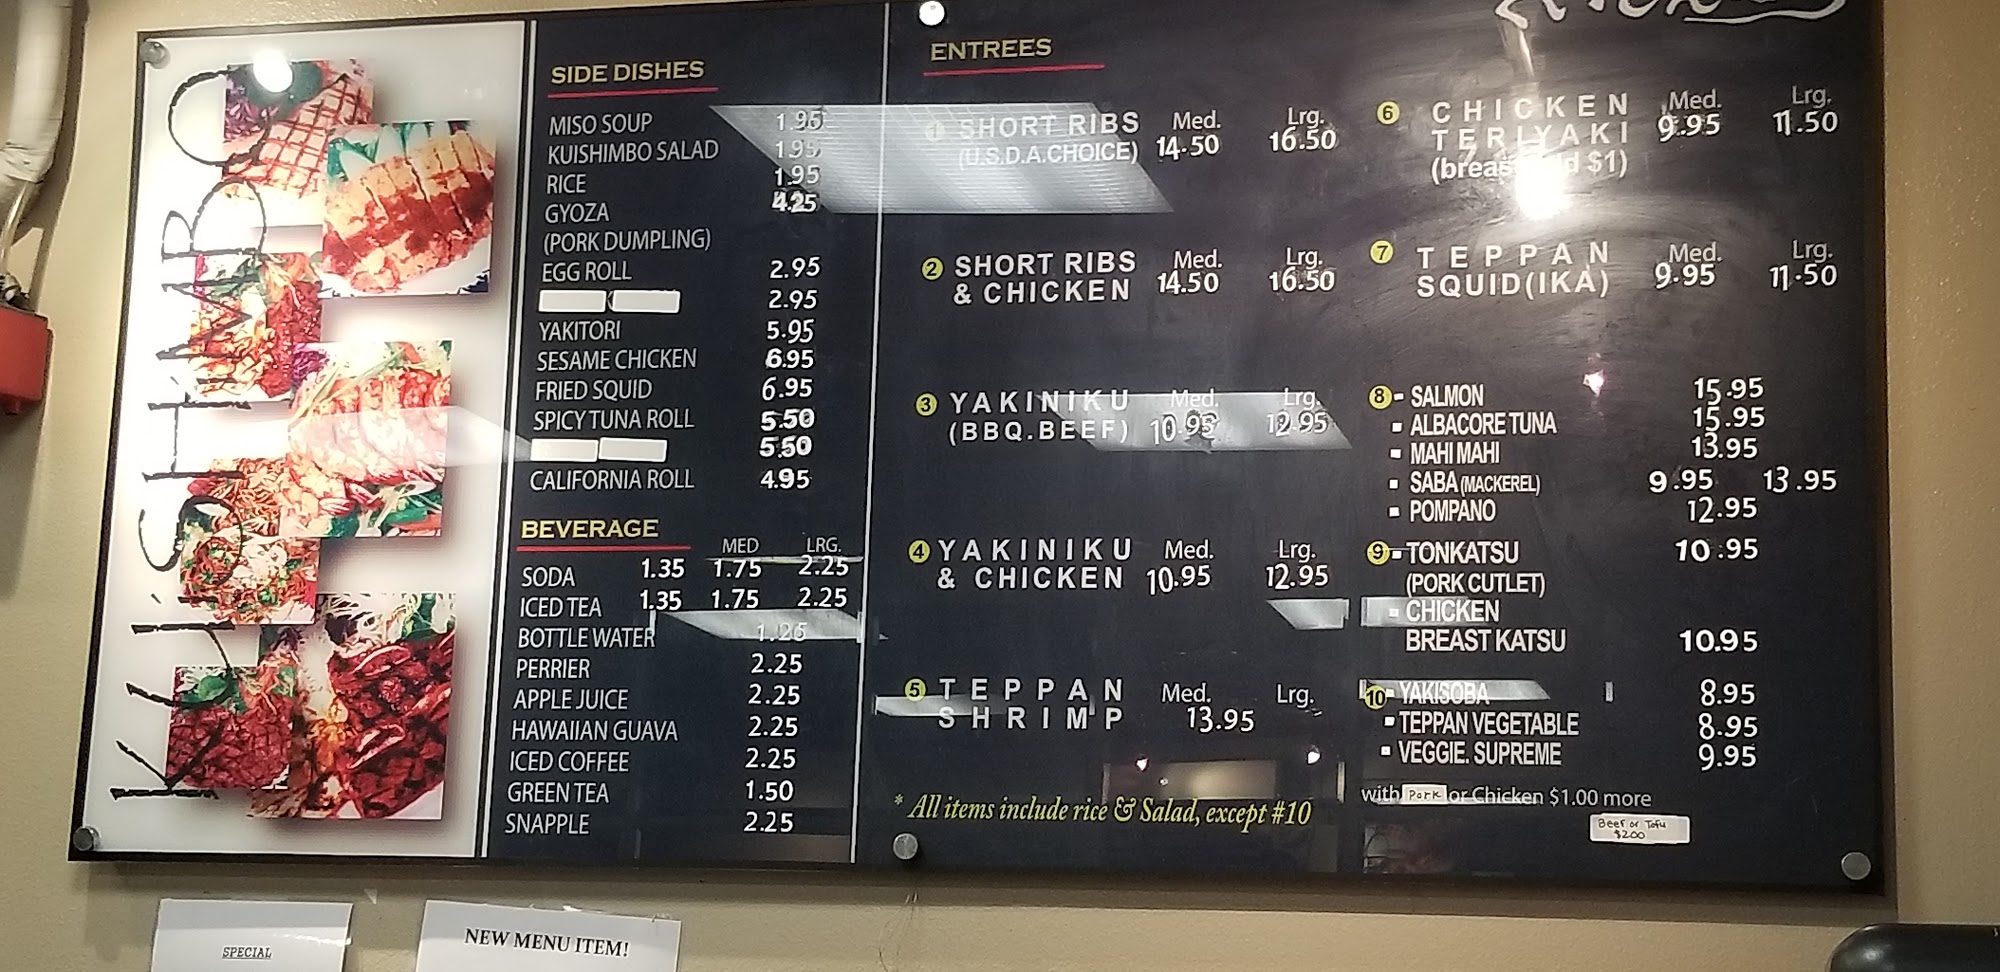 KUiSHiMBO
SIDE DISHES
MISO SOUP 1.95
KUISHIMBO SALAD 1.95
RICE 1.95
GYOZA 4.25
(PORK DUMPLING)
EGG ROLL 2.95
2.95
YAKITORI 5.95
SESAME CHICKEN 6.95
FRIED SQUID 6.95
SPICY TUNA ROLL 5.50
5.50
CALIFORNIA ROLL 4.95
BEVERAGE
MED LRG.
SODA 1.35 1.75 2.25
ICED TEA 1.35 1.75 2.25
BOTTLE WATER 1.25
PERRIER 2.25
APPLE JUICE 2.25
HAWAIIAN GUAVA 2.25
ICED COFFEE 2.25
GREEN TEA 1.50
SNAPPLE 2.25
ENTREES
1 SHORT RIBS Med. Lrg.
(U.S.D.A.CHOICE) 14.50 16.50
2 SHORT RIBS Med. Lrg.
& CHICKEN 14.50 16.50
3 YAKINIKU Med. Lrg.
(BBQ.BEEF) 10.95 12.95
4 YAKINIKU Med. Lrg.
& CHICKEN 10.95 12.95
5 TEPPAN Med. Lrg.
SHRIMP 13.95
* All items include rice & Salad, except #10
6 CHICKEN Med. Lrg.
TERIYAKI 9.95 11.50
$1)
7 TEPPAN Med. Lrg.
SQUID(IKA) 9.95 11.50
8 SALMON 15.95
ALBACORE TUNA 15.95
MAHI MAHI 13.95
SABA (MACKEREL) 9.95 13.95
POMPANO 12.95
9 TONKATSU 10.95
(PORK CUTLET)
CHICKEN
BREAST KATSU 10.95
10 YAKISOBA 8.95
TEPPAN VEGETABLE 8.95
VEGGIE. SUPREME 9.95
with Pork or Chicken $1.00 more
Beef or Tofu
$2.00
SPECIAL
NEW MENU ITEM!